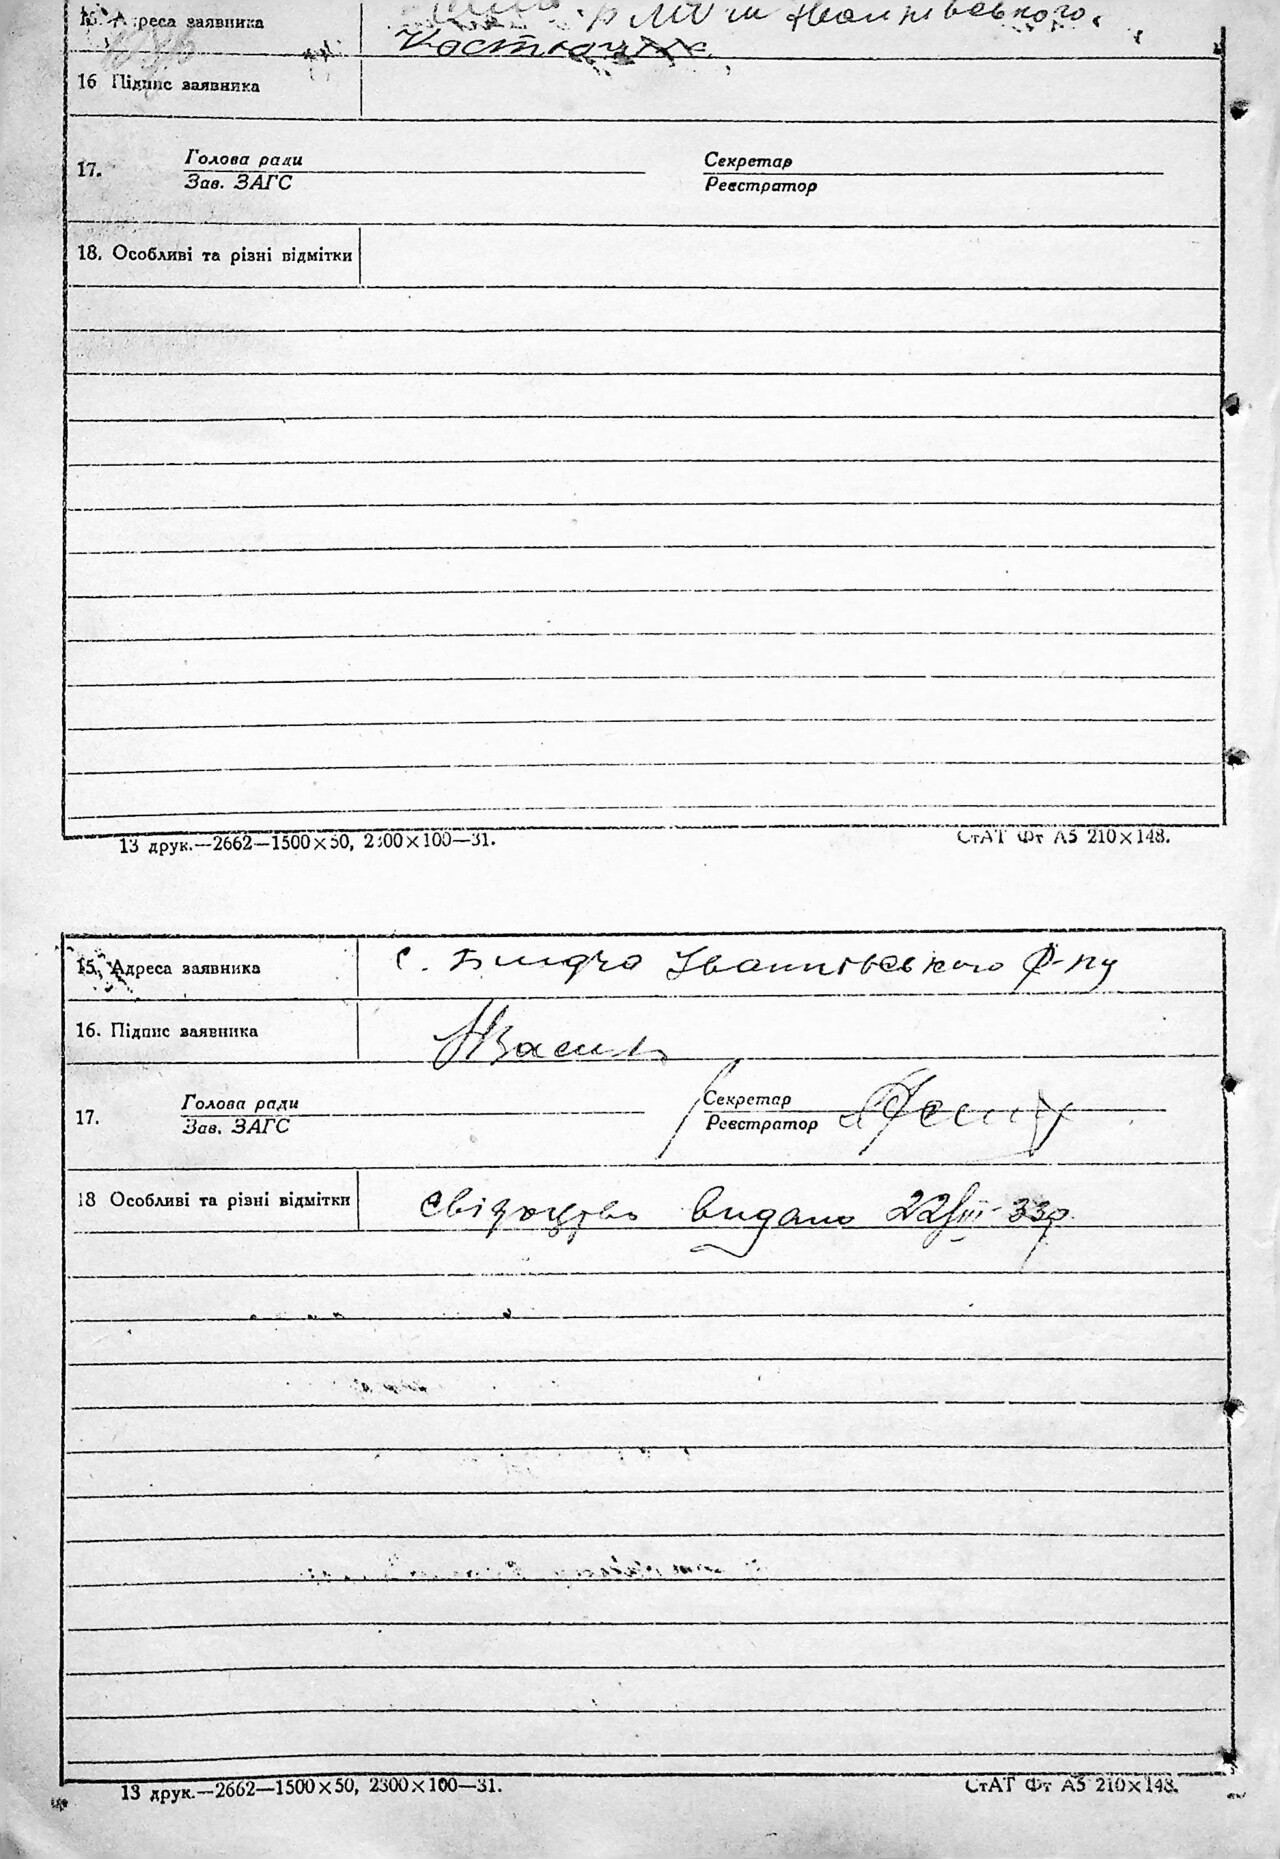 15. Адреса заявника
Іванківського.
16 Підпис заявника
17. Голова ради Секретар
Зав. ЗАГС Реєстратор
18. Особливі та різні відмітки
13 друк.—2662—1500×50, 2300×100—31. СтАТ Фт А5 210×148.
15. Адреса заявника с. Іванківського Р-ну
16. Підпис заявника
17. Голова ради Секретар
Зав. ЗАГС Реєстратор
18 Особливі та різні відмітки свідоцтво видано 22/III-33р.
13 друк.—2662—1500×50, 2300×100—31. СтАТ Фт А5 210×148.